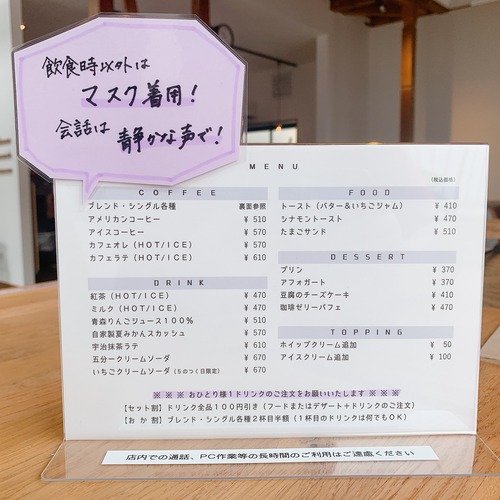 飲食時以外は
マスク着用!
会話は 静かな声で!
MENU
(税込価格)
COFFEE
ブレンド・シングル各種 裏面参照
アメリカンコーヒー ¥ 510
アイスコーヒー ¥ 570
カフェオレ (HOT/ICE) ¥ 570
カフェラテ (HOT/ICE) ¥ 610
DRINK
紅茶 (HOT/ICE) ¥ 470
ミルク (HOT/ICE) ¥ 470
青森りんごジュース100% ¥ 510
自家製夏みかんスカッシュ ¥ 570
宇治抹茶ラテ ¥ 610
五分一クリームソーダ ¥ 670
いちごクリームソーダ (5のつく日限定) ¥ 670
FOOD
トースト (バター&いちごジャム) ¥ 410
シナモントースト ¥ 470
たまごサンド ¥ 510
DESSERT
プリン ¥ 370
アフォガート ¥ 370
豆腐のチーズケーキ ¥ 410
珈琲ゼリーパフェ ¥ 470
TOPPING
ホイップクリーム追加 ¥ 50
アイスクリーム追加 ¥ 100
※ ※ ※ おひとり様1ドリンクのご注文をお願いいたします ※ ※ ※
【セット割】ドリンク全品100円引き (フードまたはデザート+ドリンクのご注文)
【おか割】ブレンド・シングル各種2杯目半額 (1杯目のドリンクは何でもOK)
店内での通話、PC作業等の長時間のご利用はご遠慮ください